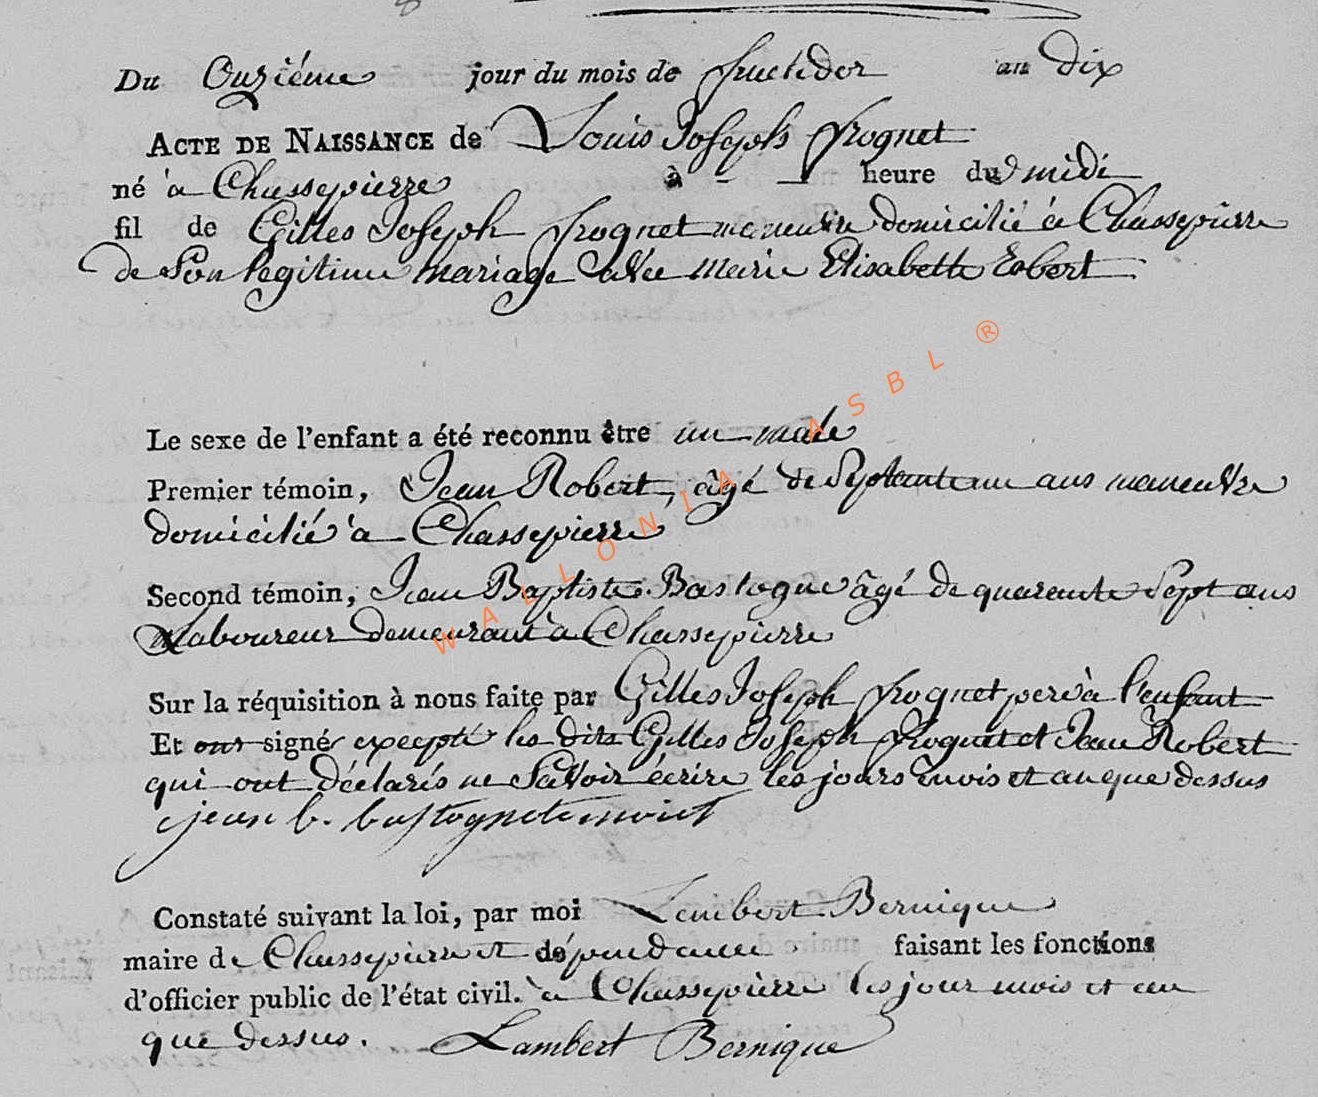 Du Onziéme jour du mois de fructidor an dix
ACTE DE NAISSANCE de Louis Joseph frognet
né à Chassepierre à - - heure du midi
fil de Gilles Joseph frognet maneuvre domicilié à Chassepierre
de Son legitime mariage avec Marie Elisabette Robert
Le sexe de l'enfant a été reconnu être un male
Premier témoin, Jean Robert, âgé de Septante un ans maneuvre
domicilié à Chassepierre
Second témoin, Jean Baptiste Bastogne âgé de quarente Sept ans
laboureur demeurant à Chassepierre
Sur la réquisition à nous faite par Gilles Joseph frognet pere à l'enfant
Et ont signé excepté les dits Gilles Joseph frognet et Jean Robert
qui ont déclarés ne Savoir écrire les jours mois et an que dessus
jean b. bastogne temoint
Constaté suivant la loi, par moi Lambert Bernique
maire de Chassepierre et dépendance faisant les fonctions
d'officier public de l'état civil. à Chassepierre les jour mois et an
que dessus. Lambert Bernique
WALLONIA ASBL ®